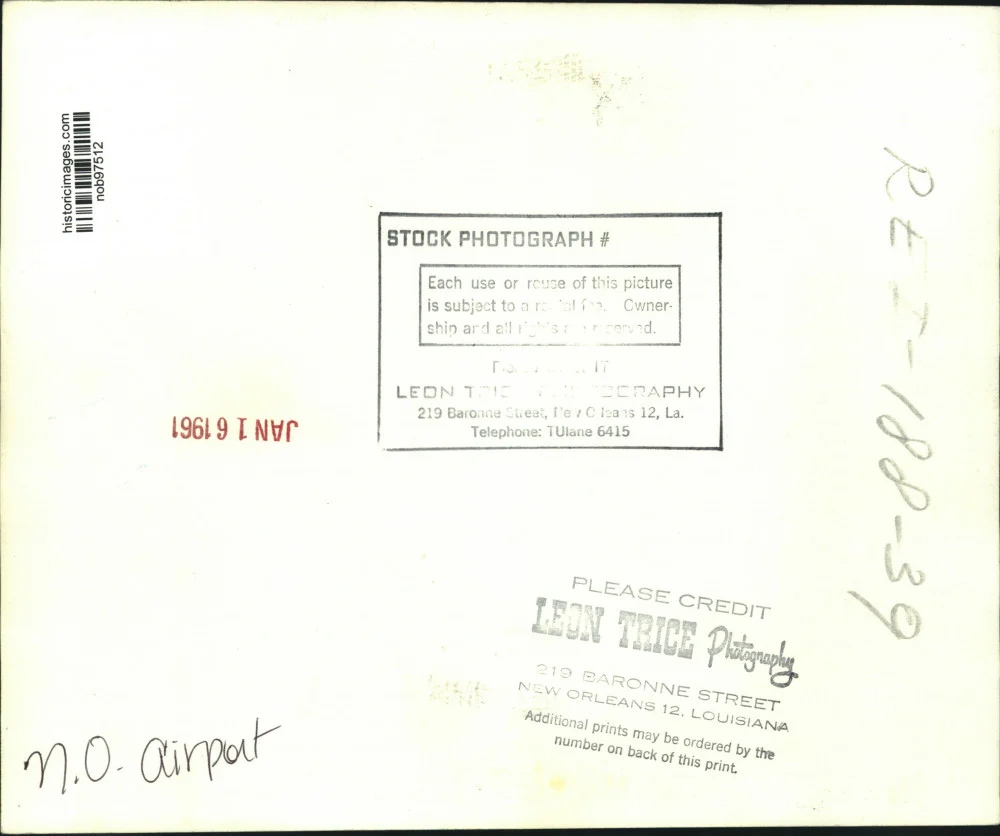 historicimages.com
nob97512
STOCK PHOTOGRAPH #
Each use or reuse of this picture
is subject to a fee. Owner-
ship and all rights reserved.
LEON PHOTOGRAPHY
219 Baronne Street, New Orleans 12, La.
Telephone: TUlane 6415
JAN 16 1961
PLEASE CREDIT
LEON TRICE Photography
219 BARONNE STREET
NEW ORLEANS 12, LOUISIANA
Additional prints may be ordered by the
number on back of this print.
N.O. Airport
188-39